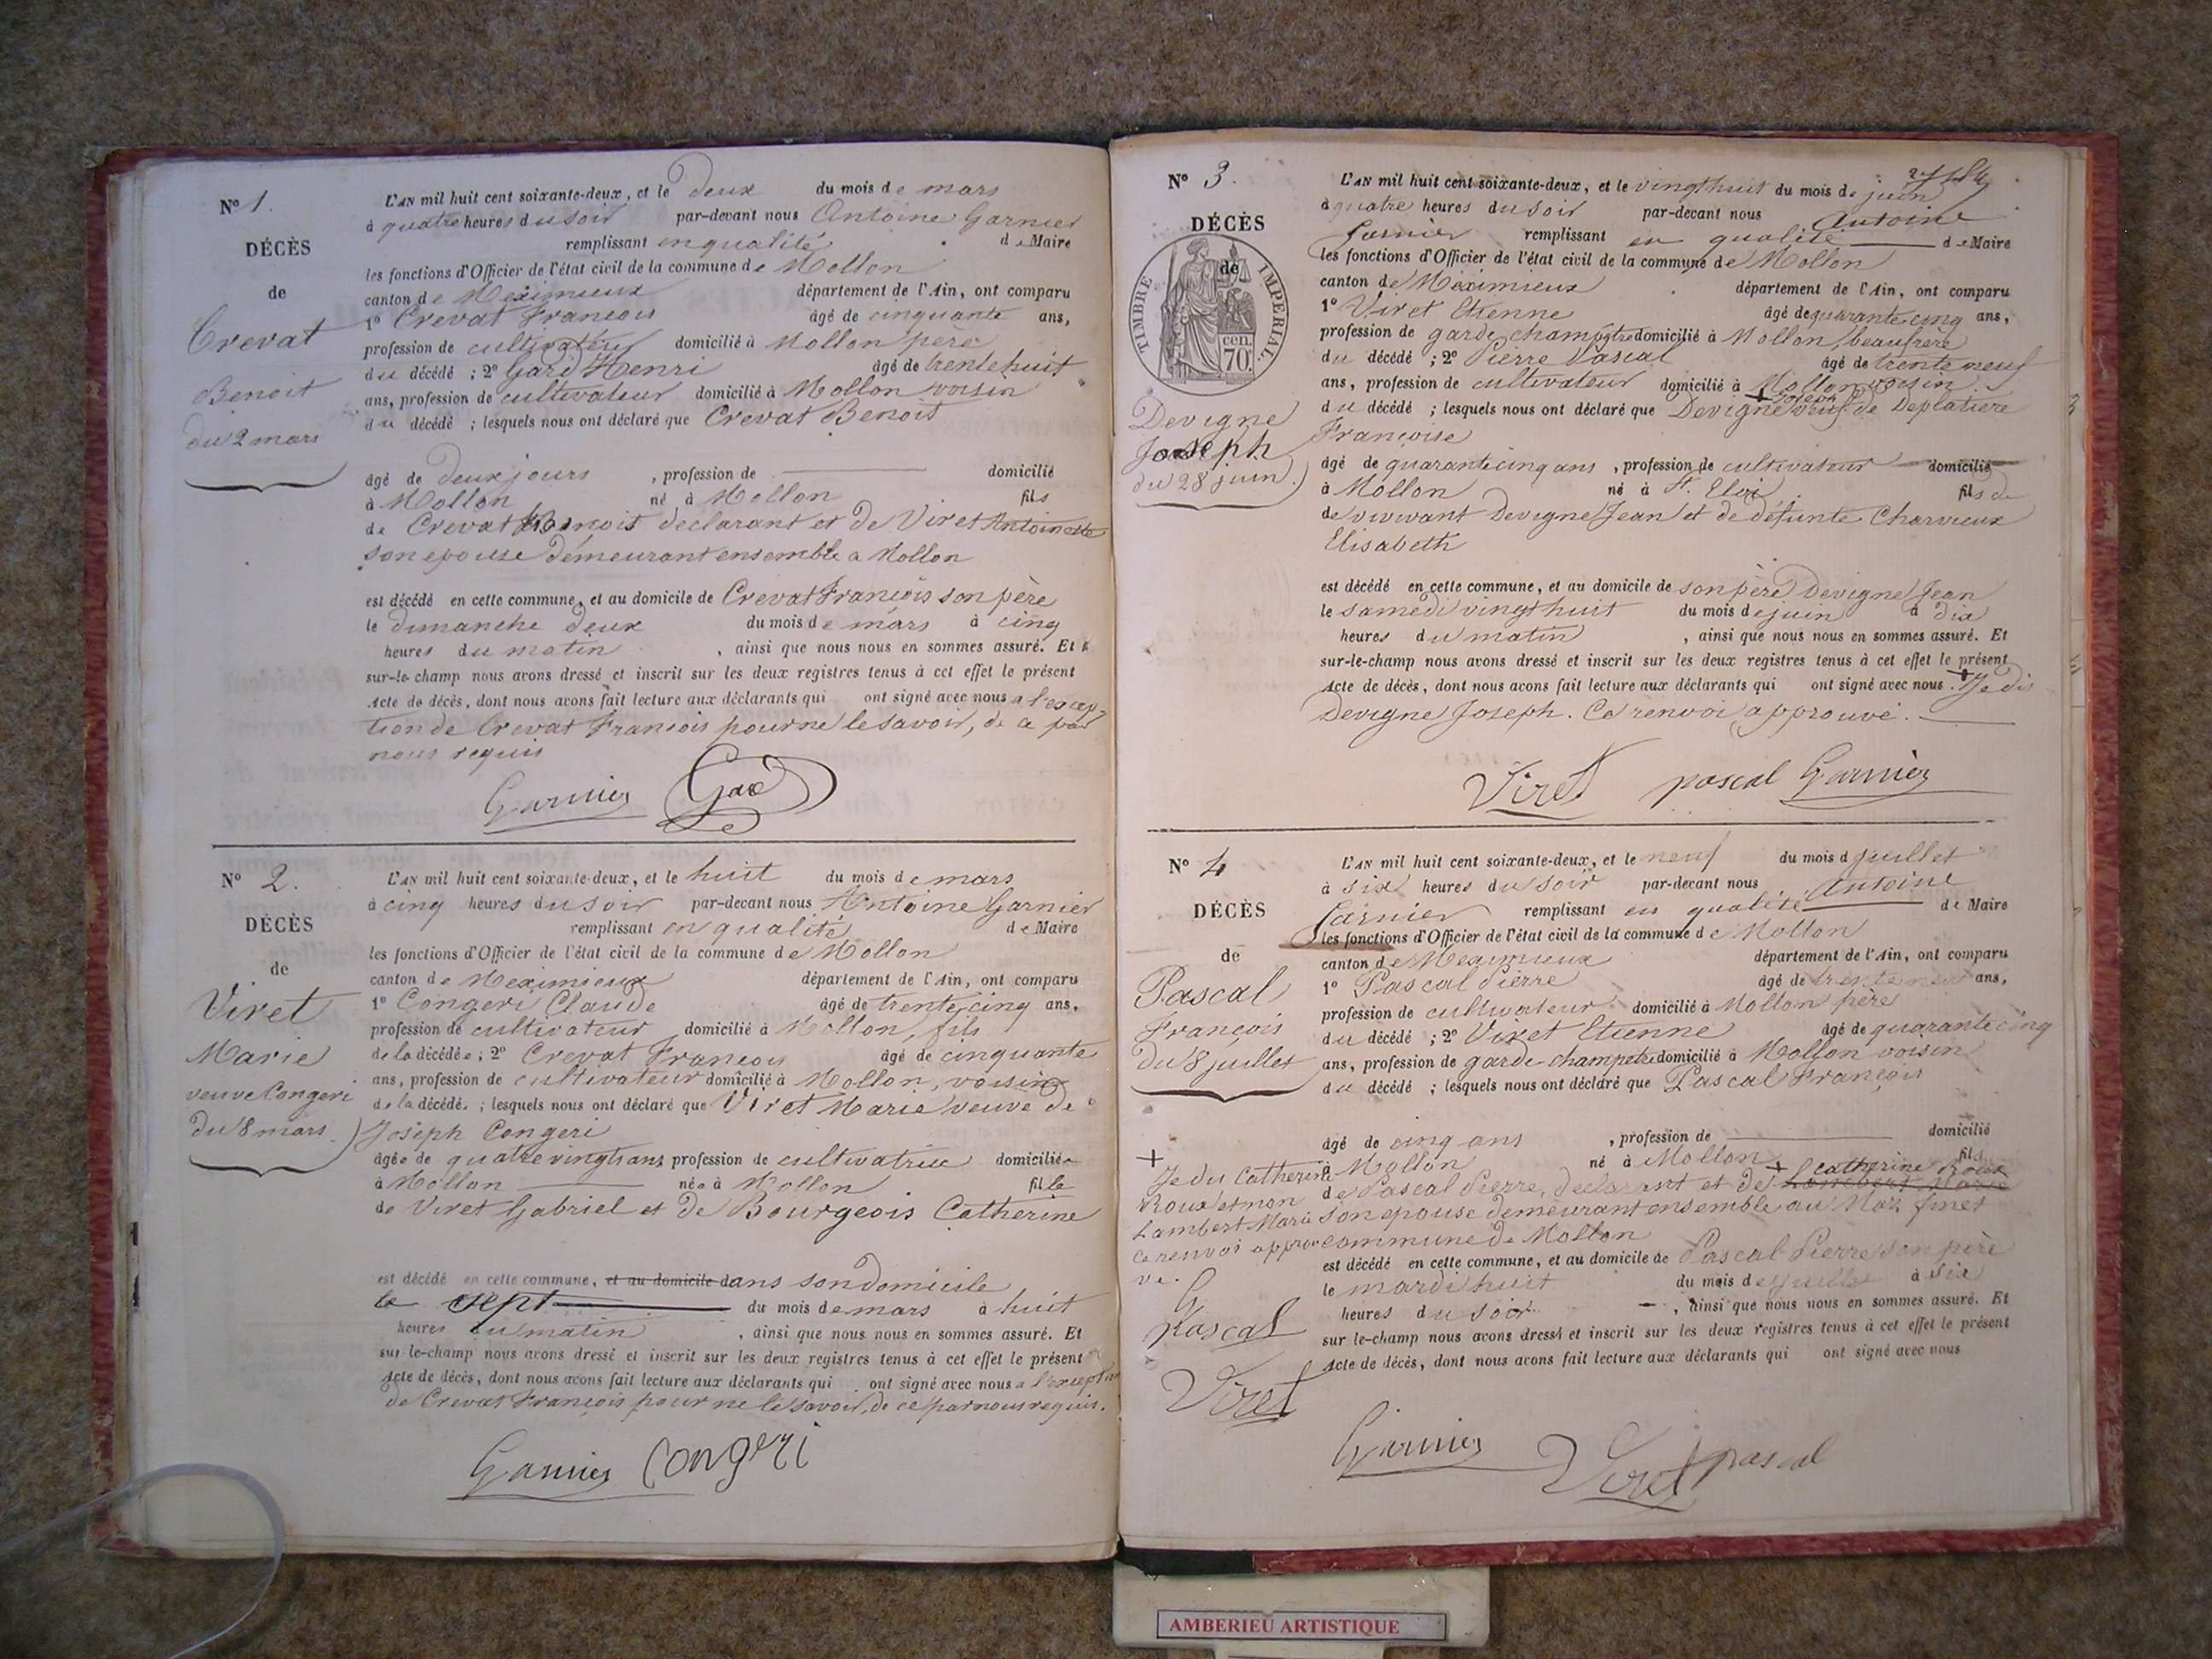 N° 1.
DÉCÈS
de
Crevat
Benoit
du 2 mars
L'AN mil huit cent soixante-deux, et le deux du mois de mars
à quatre heures du soir par-devant nous Antoine Garnier
remplissant en qualité de Maire
les fonctions d'Officier de l'état civil de la commune de Mollon
canton de Meximieux département de l'Ain, ont comparu
1° Crevat Francois âgé de cinquante ans,
profession de cultivateur domicilié à Mollon père
du décédé ; 2° Gard Henri âgé de trente huit
ans, profession de cultivateur domicilié à Mollon voisin
du décédé ; lesquels nous ont déclaré que Crevat Benoit
âgé de deux jours , profession de domicilié
à Mollon né à Mollon fils
de Crevat declarant et de Viret Antoinette
son epouse demeurant ensemble a Mollon
est décédé en cette commune, et au domicile de Crevat François son père
le dimanche deux du mois de mars à cinq
heures du matin , ainsi que nous nous en sommes assuré. Et
sur-le-champ nous avons dressé et inscrit sur les deux registres tenus à cet effet le présent
Acte de décès, dont nous avons fait lecture aux déclarants qui ont signé avec nous a l'excep-
tion de Crevat Francois pour ne le savoir, de ce par
nous requis
Garnier Gard
N° 2.
DÉCÈS
de
Viret
Marie
veuve Congeri
du 8 mars
L'AN mil huit cent soixante-deux, et le huit du mois de mars
à cinq heures du soir par-devant nous Antoine Garnier
remplissant en qualité de Maire
les fonctions d'Officier de l'état civil de la commune de Mollon
canton de Meximieux département de l'Ain, ont comparu
1° Congeri Claude âgé de trente cinq ans,
profession de cultivateur domicilié à Mollon, fils
de la décédée ; 2° Crevat Francois âgé de cinquante
ans, profession de cultivateur domicilié à Mollon, voisin
de la décédé. ; lesquels nous ont déclaré que Viret Marie veuve de
Joseph Congeri
âgée de quatre vingts ans profession de cultivatrice domiciliée
à Mollon née à Mollon fille
de Viret Gabriel et de Bourgeois Catherine
est décédé en cette commune, et au domicile dans son domicile
le sept du mois de mars à huit
heures du matin , ainsi que nous nous en sommes assuré. Et
sur le-champ nous avons dressé et inscrit sur les deux registres tenus à cet effet le présent
Acte de décès, dont nous avons fait lecture aux déclarants qui ont signé avec nous a l'exception
de Crevat François pour ne le savoir, de ce par nous requis.
Garnier Congeri
N° 3.
DÉCÈS
de
TIMBRE IMPERIAL
70 cen.
Devigne
Joseph
du 28 juin
L'AN mil huit cent soixante-deux, et le vingt huit du mois de juin
à quatre heures du soir par-devant nous Antoine
Garnier remplissant en qualité de Maire
les fonctions d'Officier de l'état civil de la commune de Mollon
canton de Meximieux département de l'Ain, ont comparu
1° Viret Etienne âgé de quarante cinq ans,
profession de garde champêtre domicilié à Mollon beaufrère
du décédé ; 2° Pierre Pascal âgé de trente neuf
ans, profession de cultivateur domicilié à Mollon voisin
+ Joseph
du décédé ; lesquels nous ont déclaré que Devigne veuf de Deplatiere
Françoise
âgé de quarante cinq ans , profession de cultivateur domicilié
à Mollon né à St. Eloi fils de
de vivant Devigne Jean et de défunte Charvieux
Elisabeth
est décédé en cette commune, et au domicile de son père Devigne Jean
le samedi vingt huit du mois de juin à dix
heures du matin , ainsi que nous nous en sommes assuré. Et
sur-le-champ nous avons dressé et inscrit sur les deux registres tenus à cet effet le présent
Acte de décès, dont nous avons fait lecture aux déclarants qui ont signé avec nous. + Je dis
Devigne Joseph. Ce renvoi approuvé.
Viret pascal Garnier
N° 4
DÉCÈS
de
Pascal
François
du 8 juillet
L'AN mil huit cent soixante-deux, et le neuf du mois d juillet
à six heures du soir par-devant nous Antoine
Garnier remplissant en qualité de Maire
les fonctions d'Officier de l'état civil de la commune de Mollon
canton de Meximieux département de l'Ain, ont comparu
1° Pascal Pierre âgé de trente neuf ans,
profession de cultivateur domicilié à Mollon père
du décédé ; 2° Viret Etienne âgé de quarante cinq
ans, profession de garde champetre domicilié à Mollon voisin
du décédé ; lesquels nous ont déclaré que Pascal François
âgé de cinq ans , profession de domicilié
à Mollon né à Mollon fils
de Pascal Pierre, declarant et de + Catherine Roux Lambert Marie
son epouse demeurant ensemble au Maz finet
commune de Mollon
est décédé en cette commune, et au domicile de Pascal Pierre son père
le mardi huit du mois de juillet à six
heures du soir , ainsi que nous nous en sommes assuré. Et
sur le-champ nous avons dressé et inscrit sur les deux registres tenus à cet effet le présent
Acte de décès, dont nous avons fait lecture aux déclarants qui ont signé avec nous
+
Je dis Catherine
Roux et non
Lambert Marie
ce renvoi approu
vé.
G
Pascal
Viret
Garnier Viret pascal
AMBERIEU ARTISTIQUE